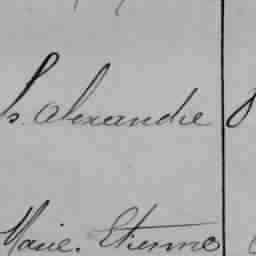 S. Alexandre
Marie. Etienne